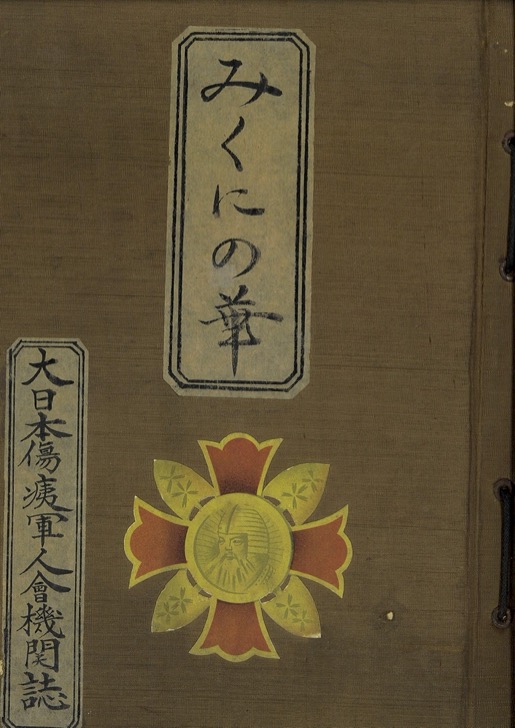 みくにの華
大日本傷痍軍人會機関誌